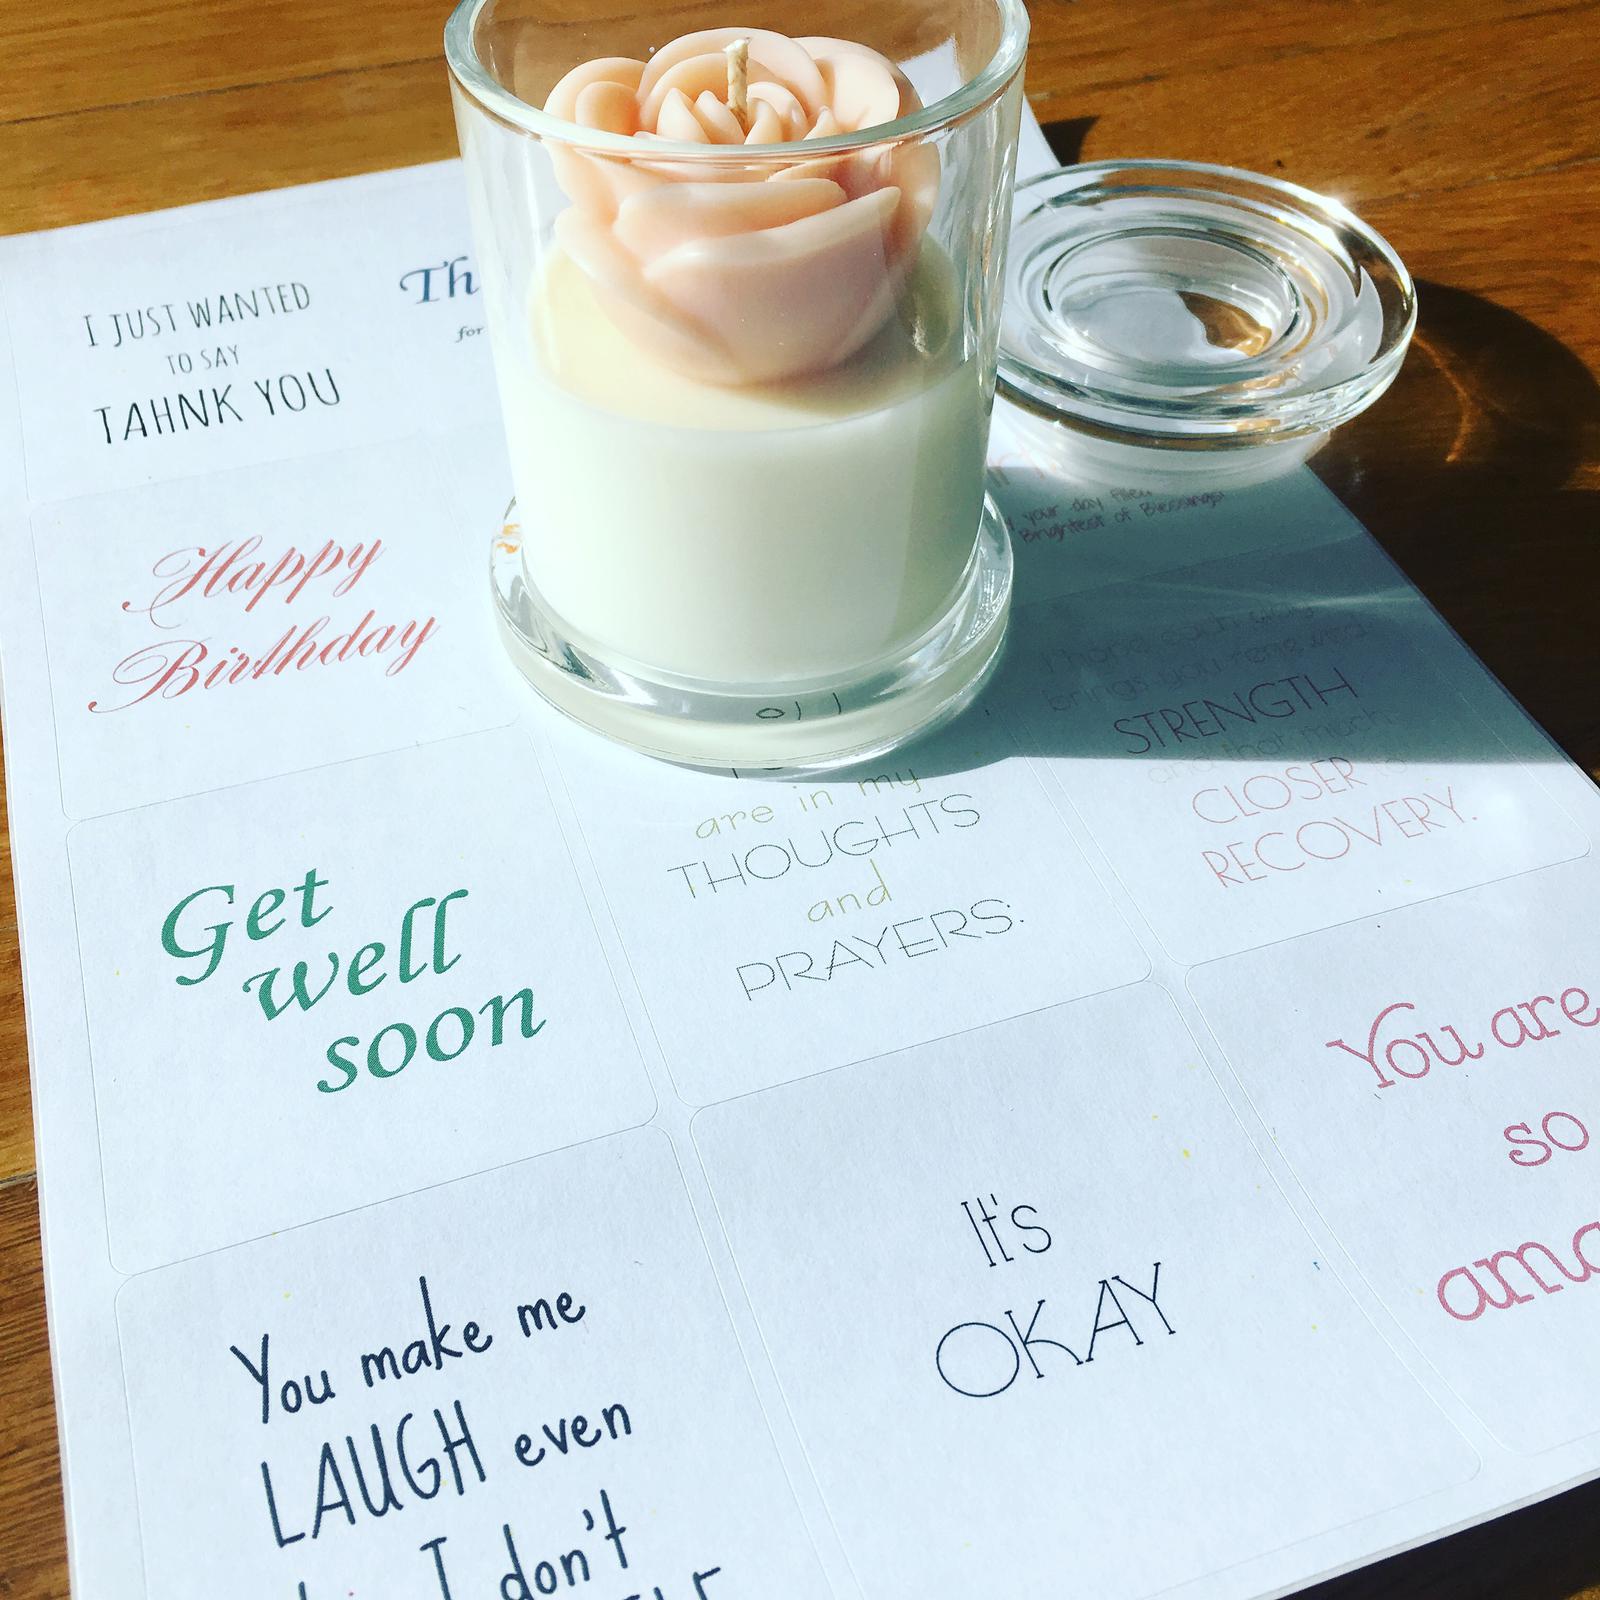 I JUST WANTED
TO SAY
TAHNK YOU
Th
for
your day filled
Brightest of Blessings
Happy
Birthday
I hope each day
brings you renewed
STRENGTH
and that much
CLOSER to
RECOVERY.
Get
well
soon
are in my
THOUGHTS
and
PRAYERS.
You are
so
ama
You make me
LAUGH even
I don't
It's
OKAY